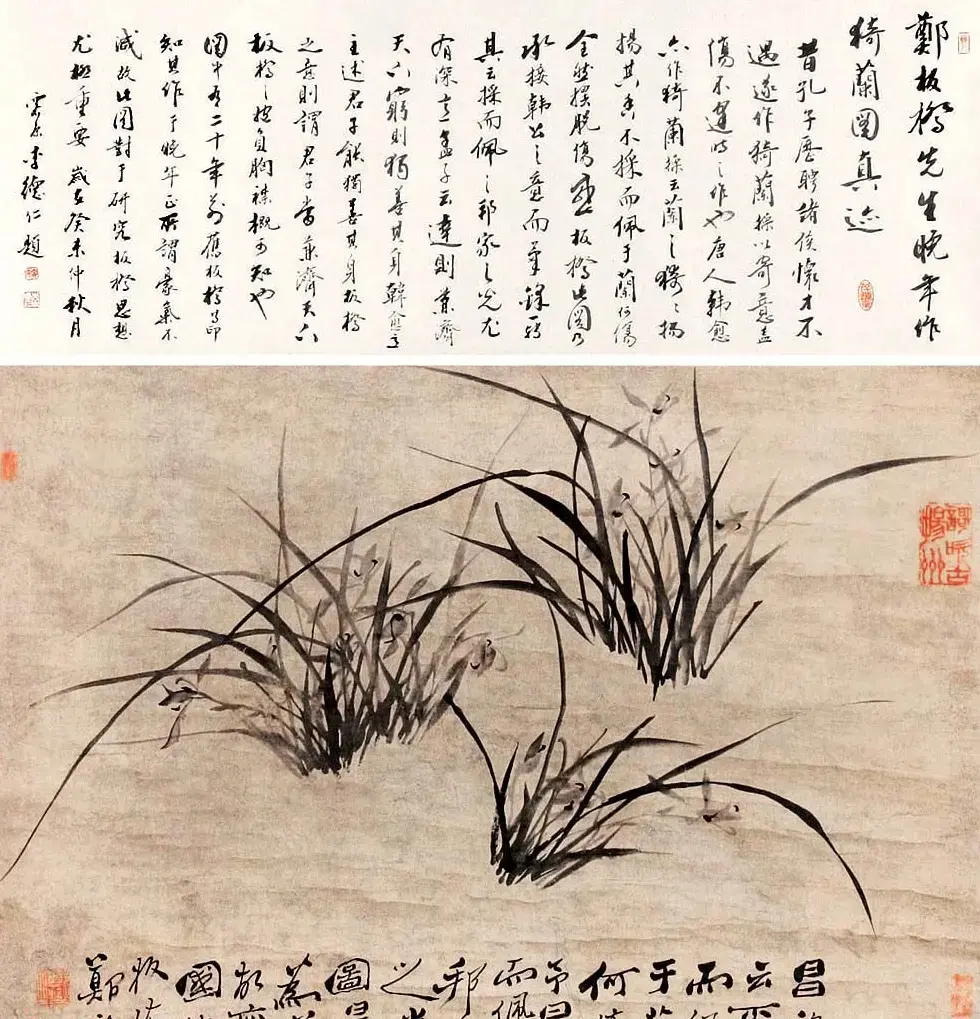 鄭板橋先生晚年作
猗蘭圖真迹
昔孔子歷聘諸侯懷才不
遇遂作猗蘭操以寄意蓋
傷不逢時之作也唐人韓愈
亦作猗蘭操云蘭之猗々揚
揚其香不採而佩于蘭何傷
全然擺脱傷感板橋此圖乃
承接韓公之意而筆鋒
其云採而佩之邦家之光尤
有深意孟子云達則兼濟
天下窮則獨善其身韓愈
主述君子能獨善其身板橋
之意則謂君子當兼濟天下
板橋之抱負胸襟概可知也
圖中有二十年前舊板橋印
知其作于晚年正所謂豪氣不
減故此圖對于研究板橋思想
尤極重要 歲在癸未仲秋月
李德仁題
歌吹古
揚州
昌
云
而
于
何
予曰
而佩
邦
之
圖
為
國
板
鄭